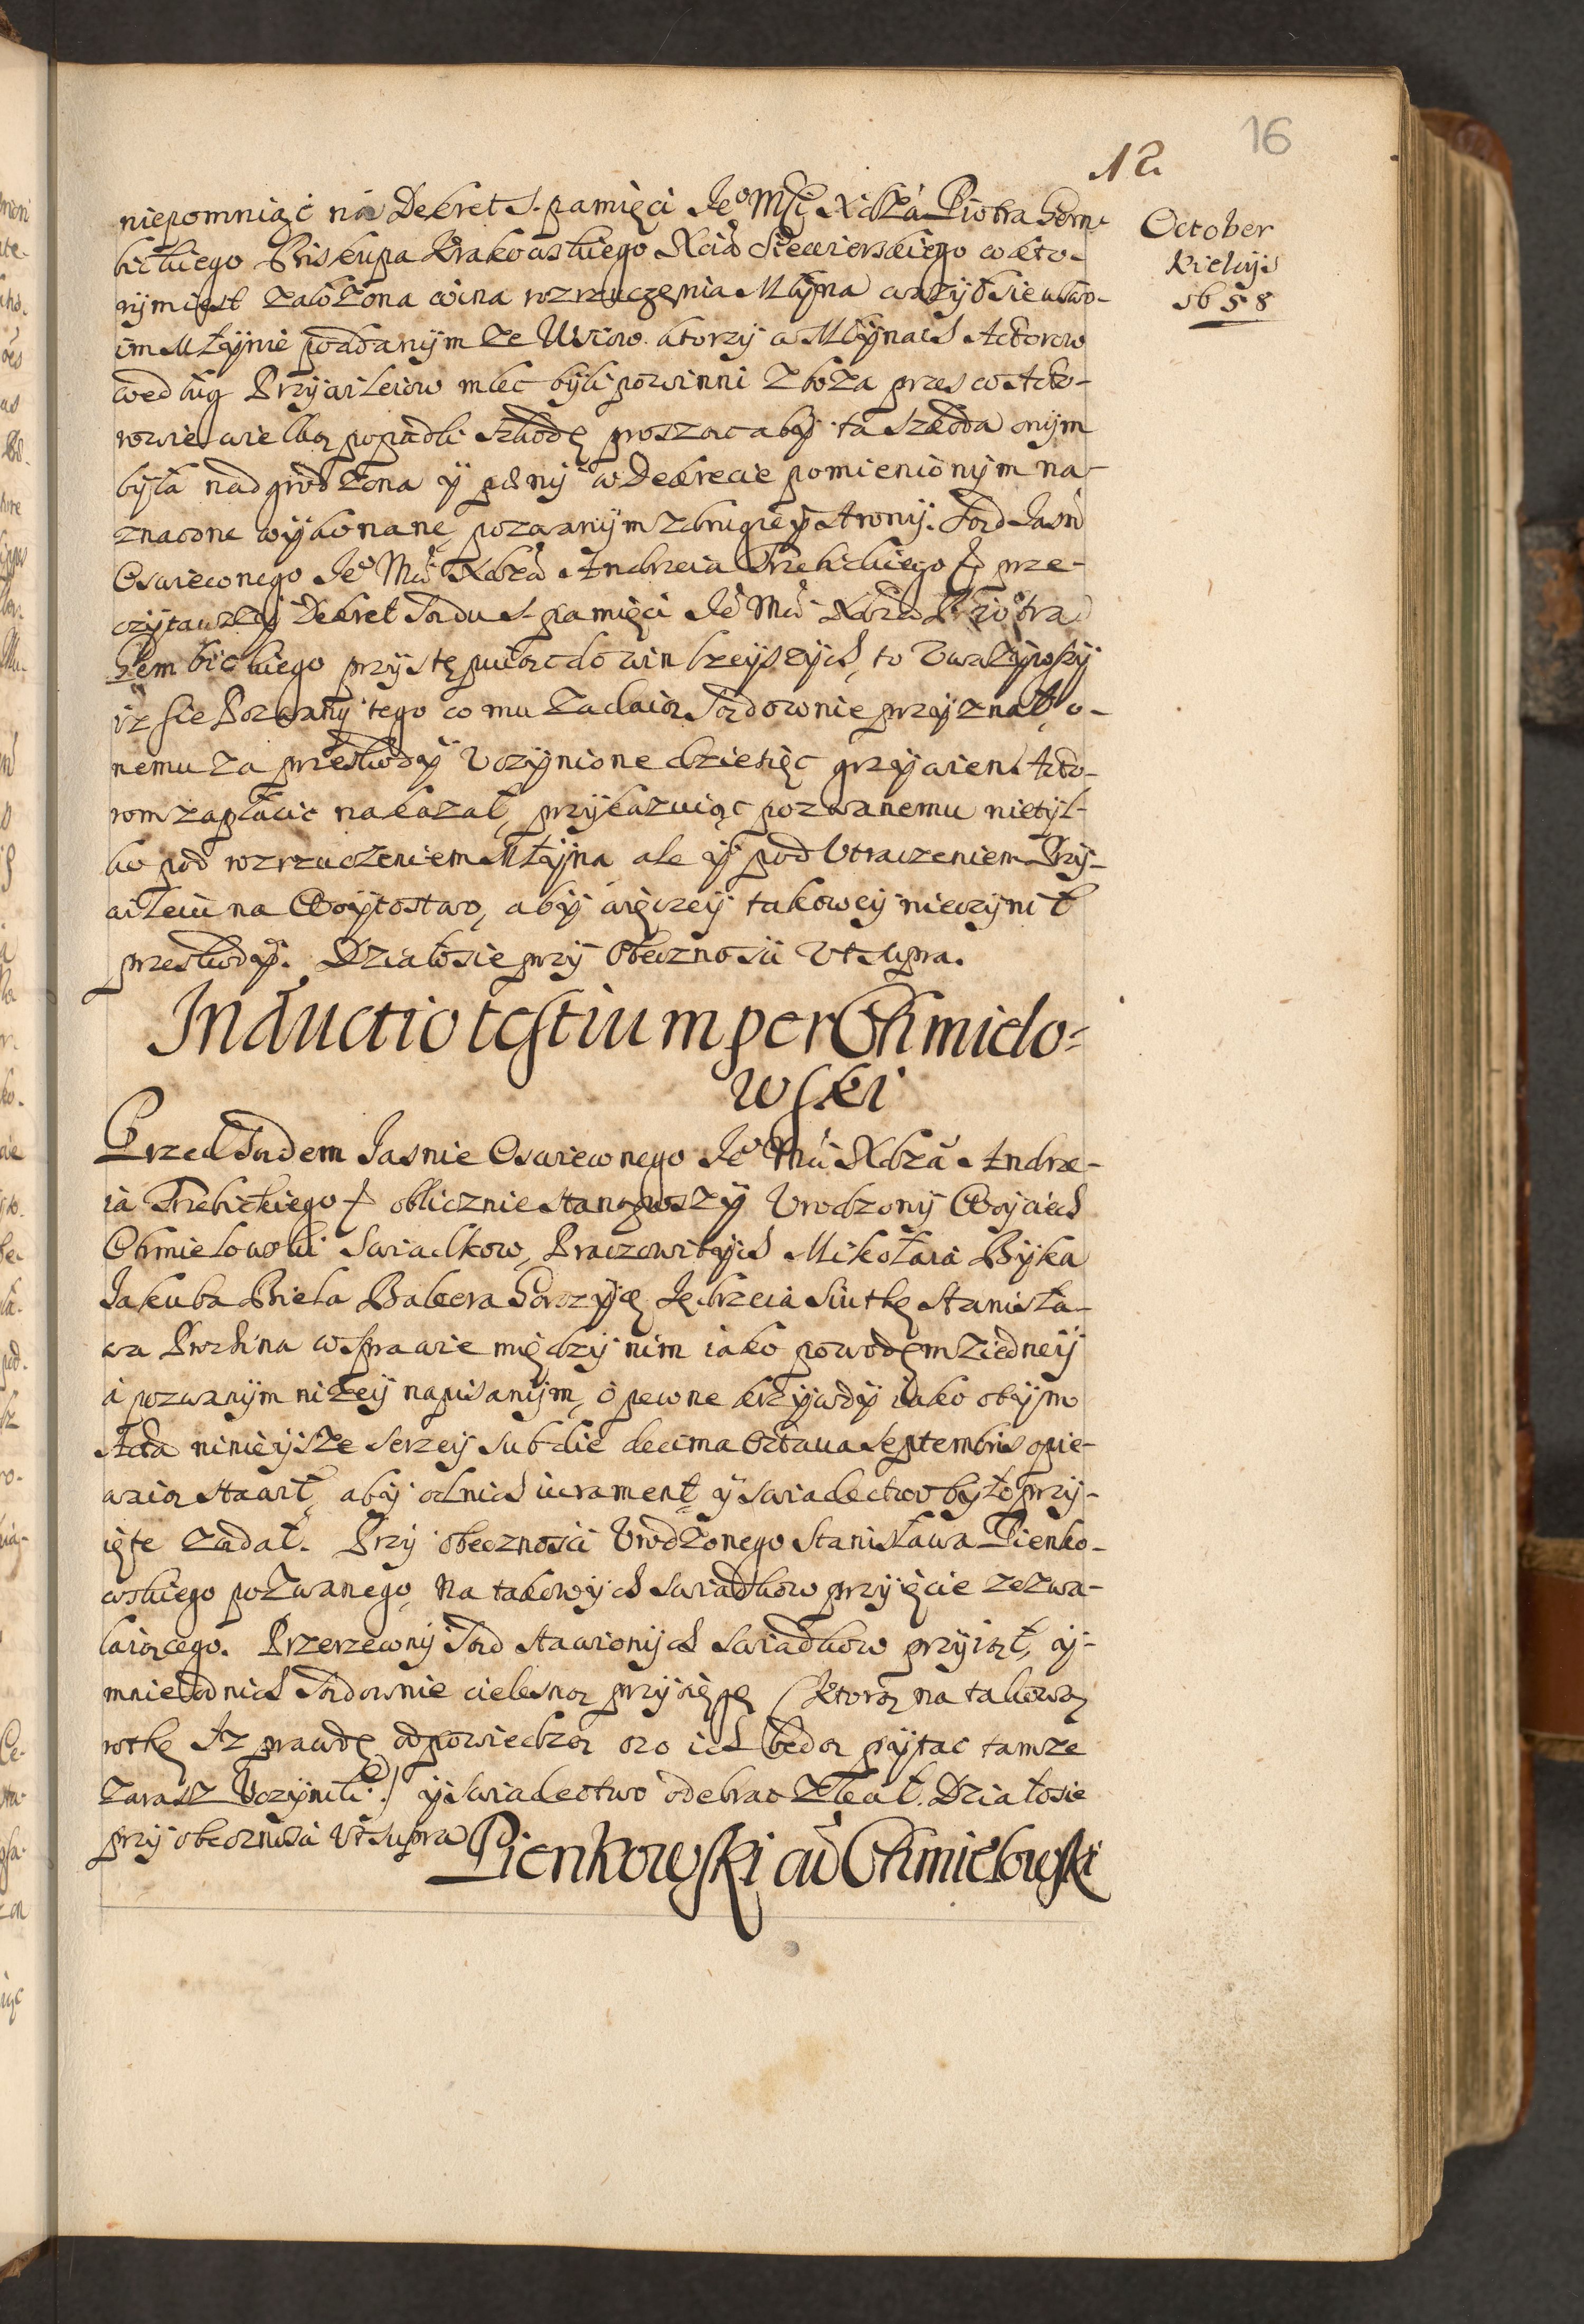 16
12
October
Kielcijs
1658
niepomniąc na Dekret S. pamięci Jeº Mści Xdza Piotra Gem-
bickiego Biskupa Krakowskiego Xcia Siewierskiego w kto-
rym iest załozona wina rozrzucęnia Młyna
im Młynie poddanym ze Wsiow. ktorzy w Młynach Actorow
według Przywileiow mlec byli powinni zboza przes co Acto-
rowie wielką popadli szkodę prosząc aby ta szkoda onym
była nadgrodzona y w Dekrecie pomienionym na-
znaczone wykonane, pozwanym z drugiey strony. Sąd Jasn
Oswieconego Jeº Mci Xdza Andrzeia Trzebickiego & prze-
czytawszy Dekret Sądu S. pamięci Jeº Mci Xdza Piotra
Gembickiego przystępuiąc do win to Uwazywszy
iz sie Pozwany tego co mu zadaią Sądownie przyznał, o-
nemu za przeskody Uczynione dziesięc grzywien Acto-
rom zapłacic nakazał, przykazuiąc pozwanemu nietyl-
ko pod rozrzuczeniem Młyna ale y pod Utraczeniem Przy-
wileiu na Woytostwo, aby więczey takowey nieczynił
przeskody. Działosie przy Obecznosci Ut supra.
Inductio testium per Chmielo=
wski
Przed Sądem Jasnie Oswieconego Jeº Mci Xdza Andrze-
ia Trzebickiego & oblicznie stanąwszy Urodzony Woyciech
Chmielowski Swiadkow, Praczowitych Mikołaia Byka
Jakuba Biela Balcera Gorczycę Jędrzeia Siutkę Stanisła-
wa w Sprawie między nim iako powodęm z iedney
a pozwanym nizey napisanym, o pewne krzywdy iako o tym
Acta ninieysze serzey sub die decima Octaua Septembris opie-
waią stawił, aby od nich iurament y swiadectwo było przy-
ięte ządał. Przy obecznosci Urodzonego Stanisława Pienko-
wskiego pozwanego, na takowych swiadkow przyięcie zezwa-
laiącego. Przerzeczony Sąd stawionych swiadkow przyiął, y
mnie od nich Sądownie cielesną przysięgę (ktorą na takową
rotkę Iz prawdę odpowiedzą oco ich będą pytac tamze
zarasz Uczynili) y swiadectwo odebrac zleał. Działosie
przy obecznosci Ut supra
Pienkowski ad Chmielowski